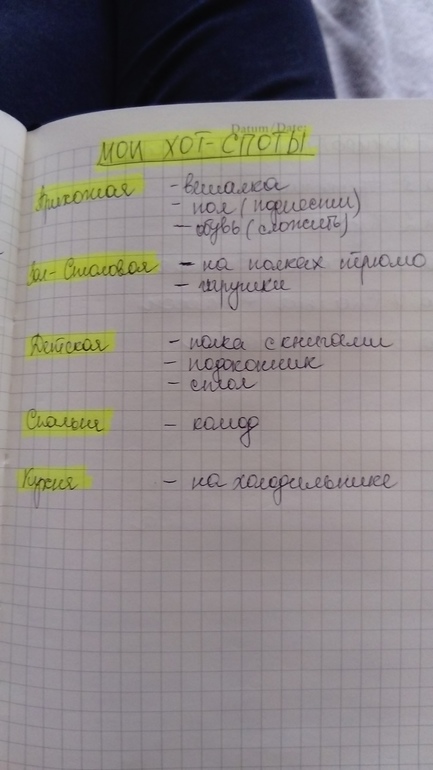 Datum/Date
МОИ ХОТ-СПОТЫ
Прихожая - вешалка
- пол (подмести)
- обувь (сложить)
Зал-Столовая - на полках трюмо
- игрушки
Детская - полка с книгами
- подоконник
- стол
Спальня - комод
Кухня - на холодильнике